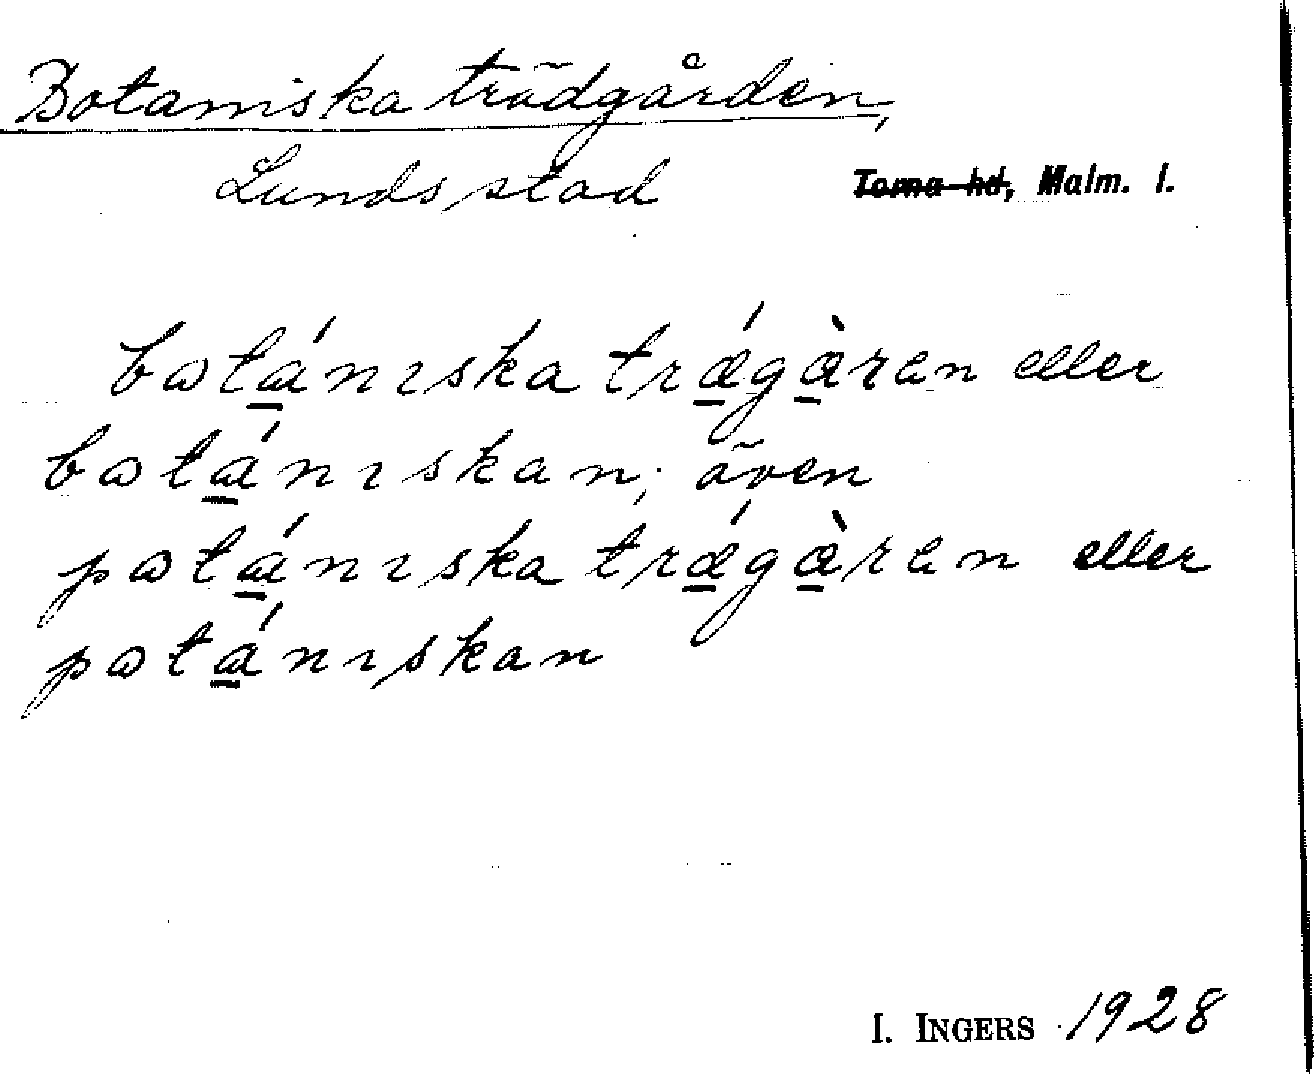 Botaniska trädgården,
Lunds stad Torna hd, Malm. l.
botániska trǽgàren eller
botániskan; även
potániska trǽgàren eller
potániskan
I. INGERS 1928